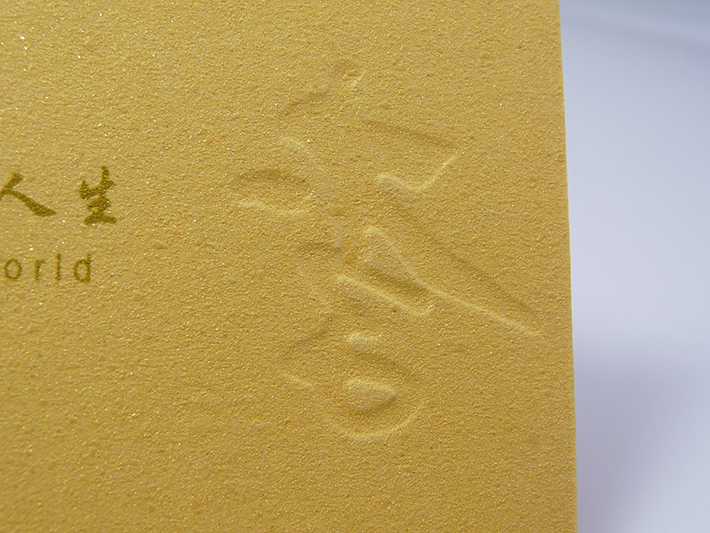 人生
orld